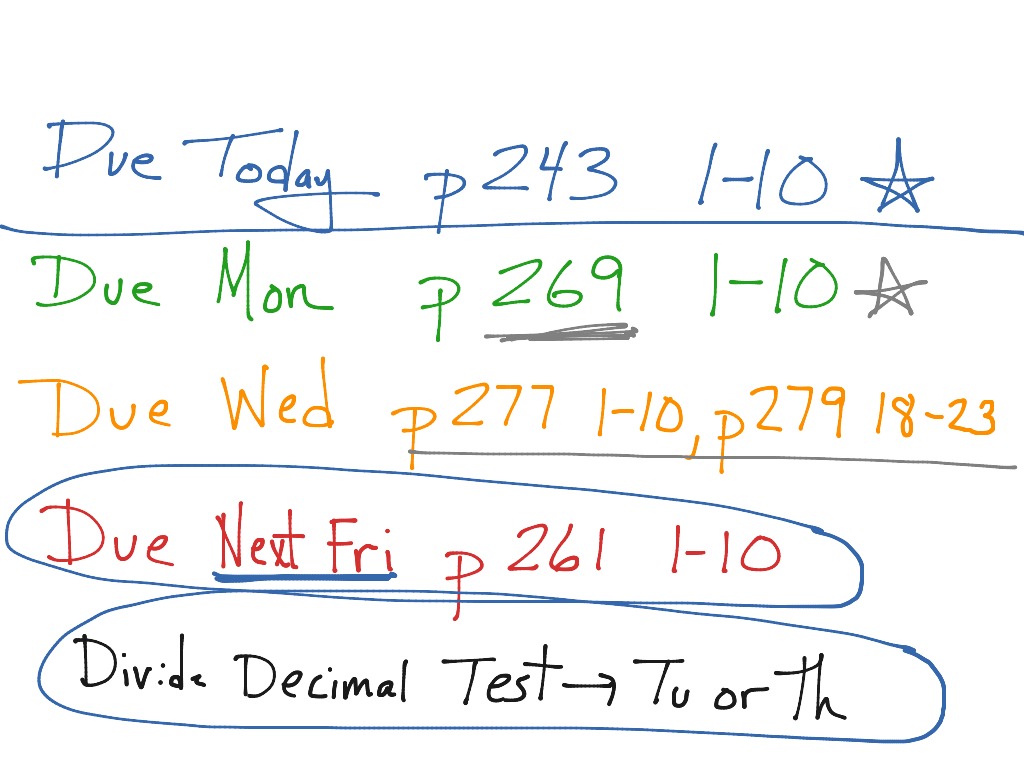 Due Today p 243 1-10
Due Mon p 269 1-10
Due Wed p 277 1-10, p 279 18-23
Due Next Fri p 261 1-10
Divide Decimal Test → Tu or Th